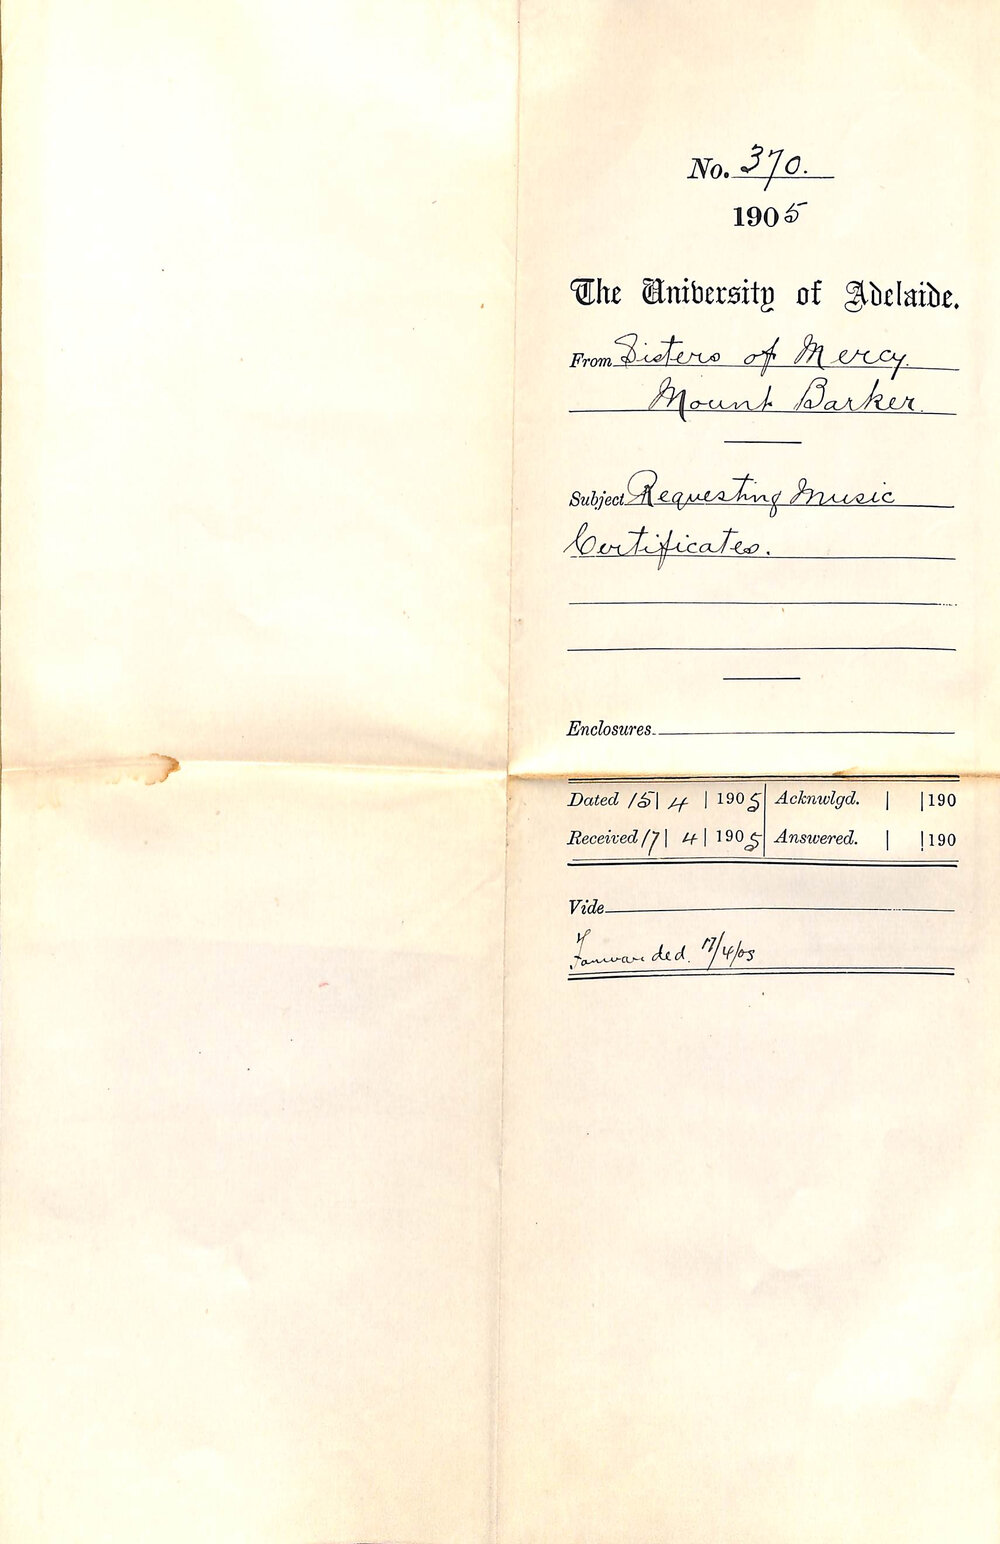 No. 370.
1905
The University of Adelaide.
From Sisters of Mercy.
Mount Barker.
Subject Requesting Music
Certificates.
Enclosures.
Dated 15 | 4 | 1905 Acknwlgd. | | 190
Received 17 | 4 | 1905 Answered. | | 190
Vide
Forwarded. 17/4/05